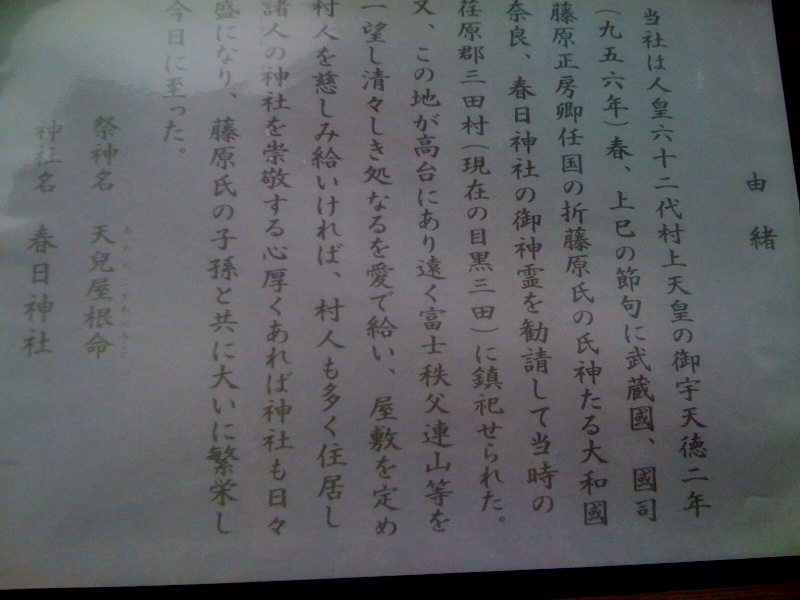 由緒
当社は人皇六十二代村上天皇の御宇天徳二年
(九五六年)春、上巳の節句に武蔵國、國司
藤原正房卿任国の折藤原氏の氏神たる大和國
奈良、春日神社の御神霊を勧請して当時の
荏原郡三田村(現在の目黒三田)に鎮祀せられた。
又、この地が高台にあり遠く富士秩父連山等を
一望し清々しき処なるを愛で給い、屋敷を定め
村人を慈しみ給いければ、村人も多く住居し
諸人の神社を崇敬する心厚くあれば神社も日々
盛になり、藤原氏の子孫と共に大いに繁栄し
今日に至った。
祭神名 天兒屋根命
神社名 春日神社